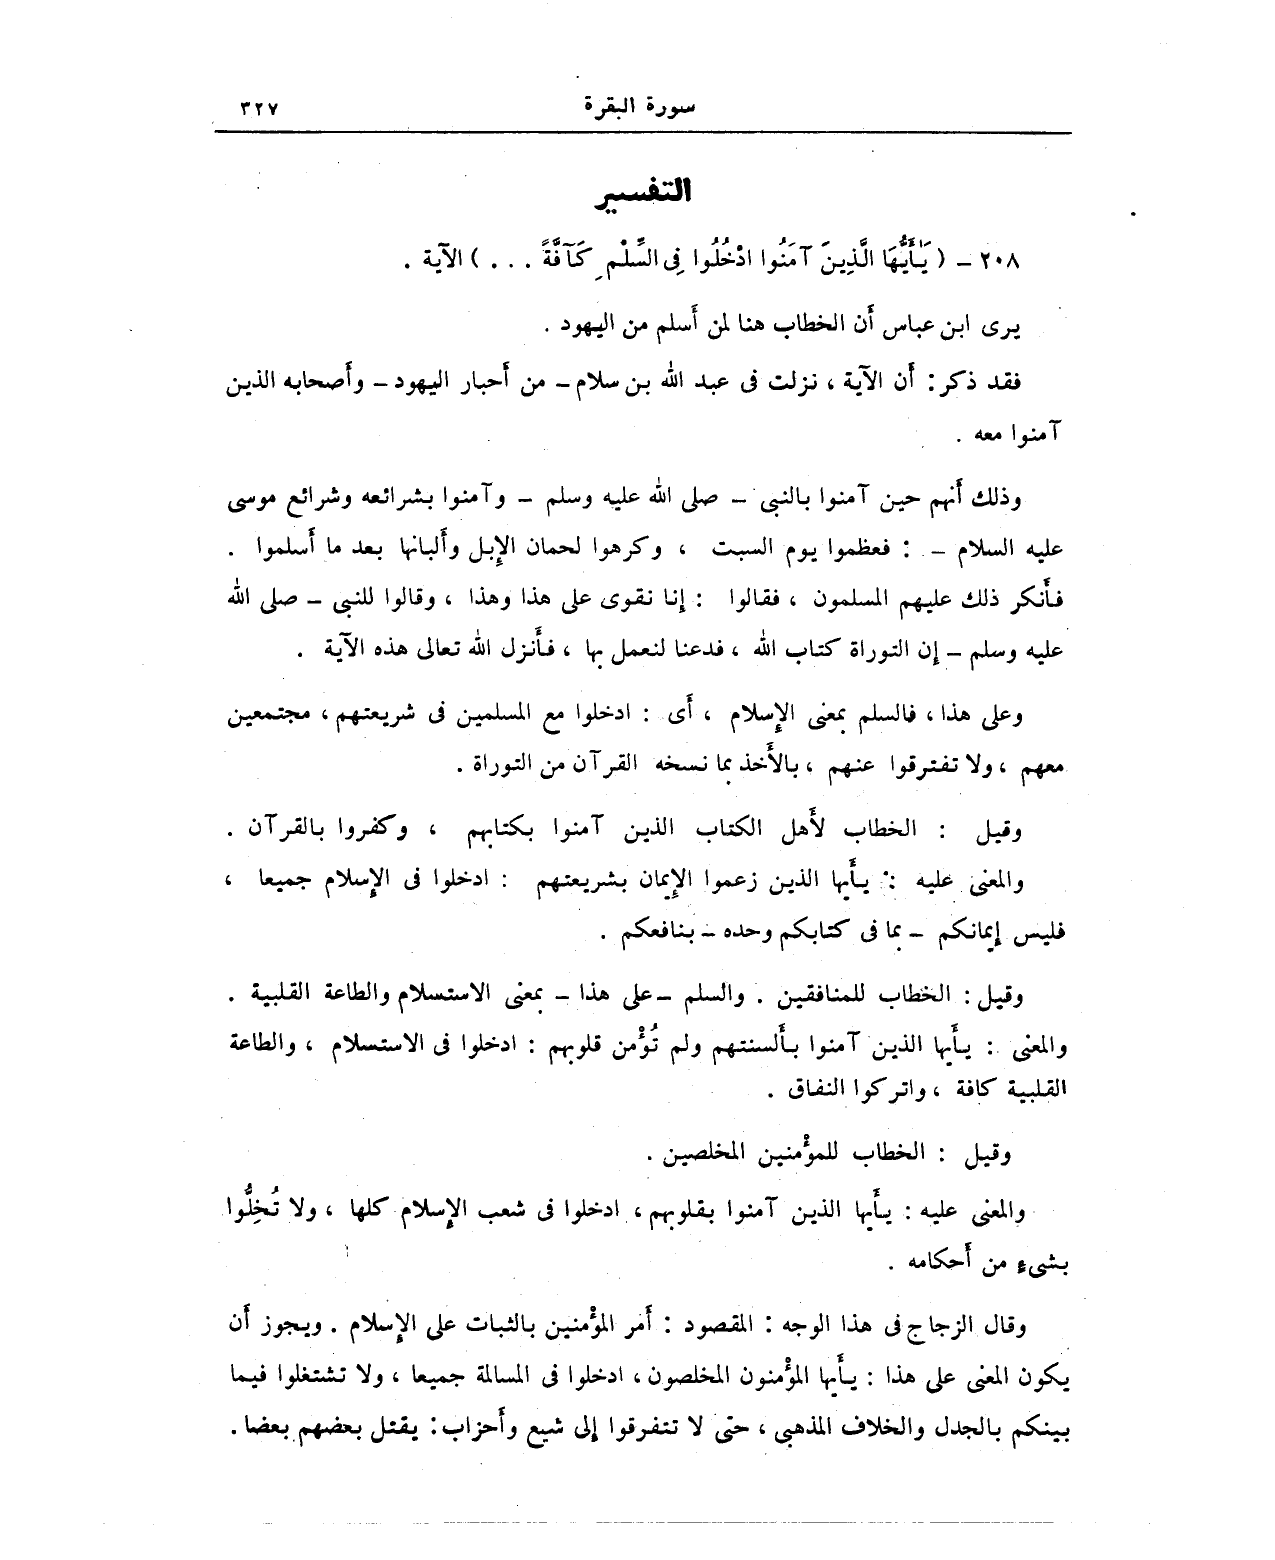 سورة البقرة ٣٢٧
التفسير
٢٠٨ – ( يَٰأَيُّهَا الَّذِينَ آمَنُوا ادْخُلُوا فِى السِّلْمِ كَآفَّةً . . . ) الآية .
يرى ابن عباس أن الخطاب هنا لمن أسلم من اليهود .
فقد ذكر : أن الآية ، نزلت فى عبد الله بن سلام – من أحبار اليهود – وأصحابه الذين
آمنوا معه .
وذلك أنهم حين آمنوا بالنبى – صلى الله عليه وسلم – وآمنوا بشرائعه وشرائع موسى
عليه السلام – : فعظموا يوم السبت ، وكرهوا لحمان الإبل وألبانها بعد ما أسلموا .
فأنكر ذلك عليهم المسلمون ، فقالوا : إنا نقوى على هذا وهذا ، وقالوا للنبى – صلى الله
عليه وسلم – إن التوراة كتاب الله ، فدعنا لنعمل بها ، فأنزل الله تعالى هذه الآية .
وعلى هذا ، فالسلم بمعنى الإسلام ، أى : ادخلوا مع المسلمين فى شريعتهم ، مجتمعين
معهم ، ولا تفترقوا عنهم ، بالأخذ بما نسخه القرآن من التوراة .
وقيل : الخطاب لأهل الكتاب الذين آمنوا بكتابهم ، وكفروا بالقرآن .
والمعنى عليه : يأيها الذين زعموا الإيمان بشريعتهم : ادخلوا فى الإسلام جميعا ،
فليس إيمانكم – بما فى كتابكم وحده – بنافعكم .
وقيل : الخطاب للمنافقين . والسلم – على هذا – بمعنى الاستسلام والطاعة القلبية .
والمعنى : يأيها الذين آمنوا بألسنتهم ولم تُؤْمن قلوبهم : ادخلوا فى الاستسلام ، والطاعة
القلبية كافة ، واتركوا النفاق .
وقيل : الخطاب للمؤمنين المخلصين .
والمعنى عليه : يأيها الذين آمنوا بقلوبهم ، ادخلوا فى شعب الإسلام كلها ، ولا تُخِلُّوا
بشىء من أحكامه .
وقال الزجاج فى هذا الوجه : المقصود : أمر المؤمنين بالثبات على الإسلام . ويجوز أن
يكون المعنى على هذا : يأيها المؤمنون المخلصون ، ادخلوا فى المسالمة جميعا ، ولا تشتغلوا فيما
بينكم بالجدل والخلاف المذهبى ، حتى لا تتفرقوا إلى شيع وأحزاب : يقتل بعضهم بعضا .